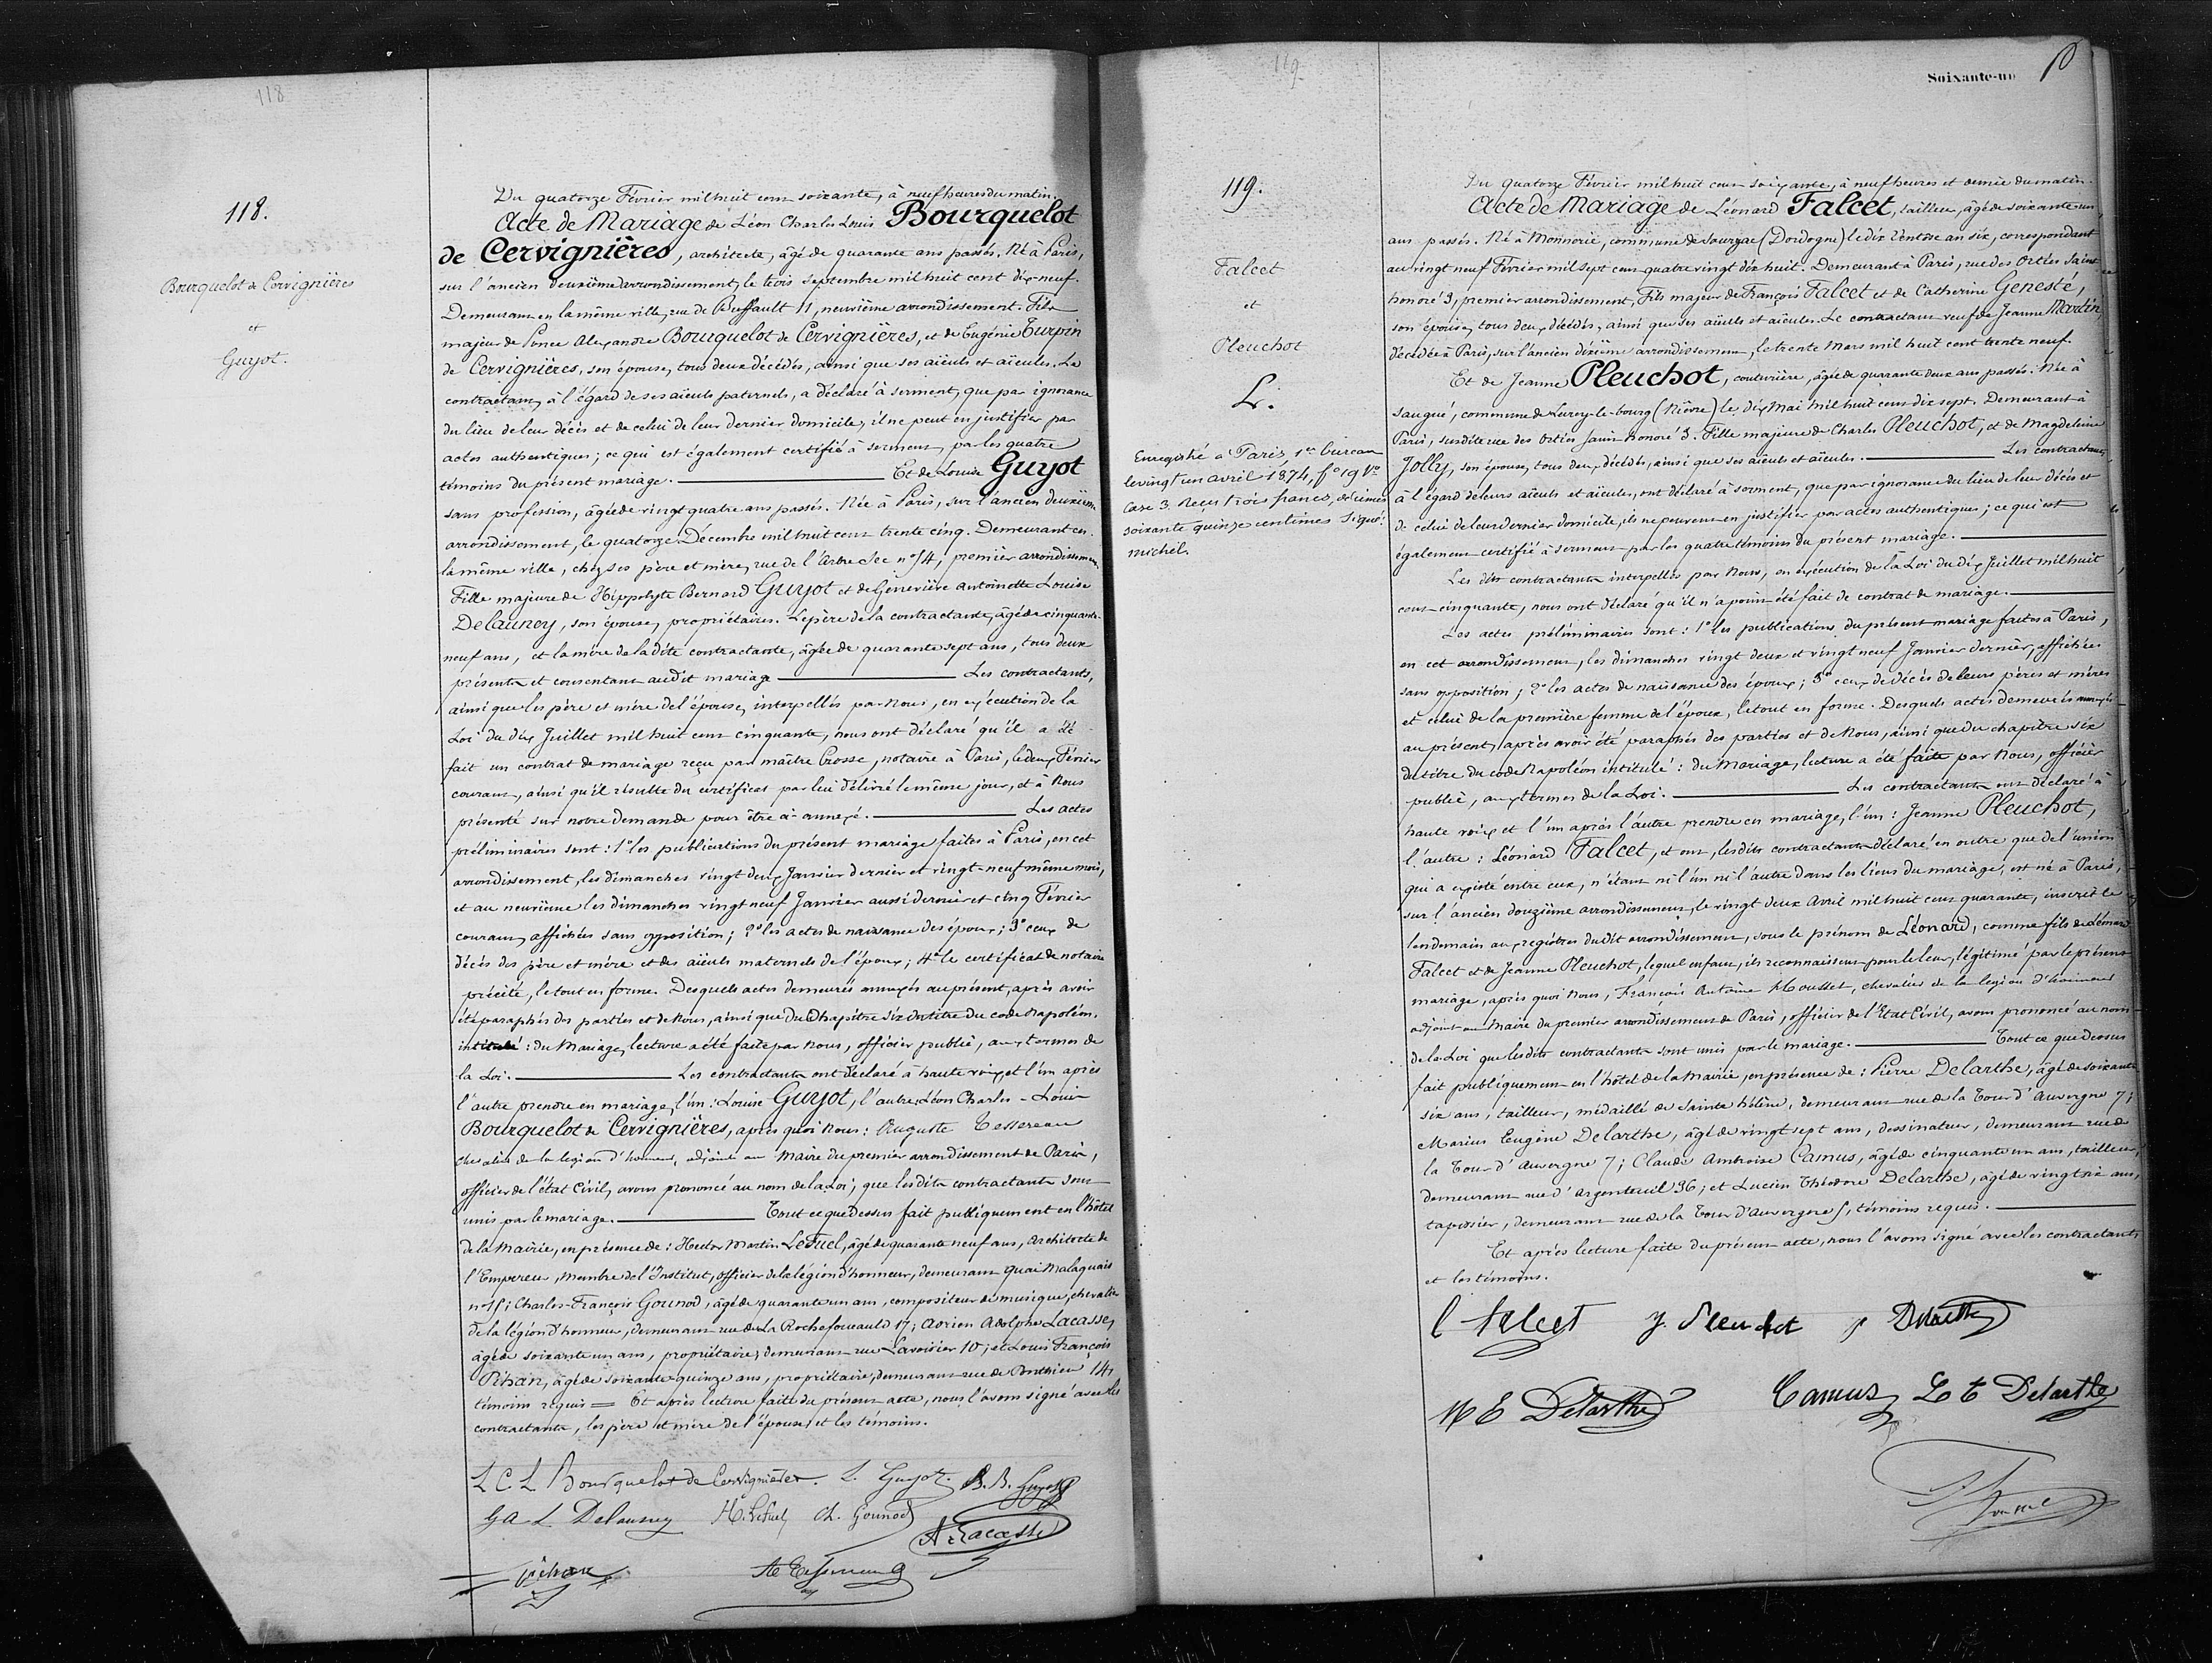 118
118.
Bourquelot de Cervignières
et
Guyot.
Du quatorze Février mil huit cent soixante, à neuf heures du matin.
Acte de Mariage de Léon Charles Louis Bourquelot
de Cervignières, architecte, âgé de quarante ans passés. Né à Paris,
sur l'ancien deuxième arrondissement, le trois septembre mil huit cent dix-neuf.
Demeurant en la même ville, rue de Buffault 11, neuvième arrondissement. Fils
majeur de Ponce Alexandre Bourquelot de Cervignières, et de Eugénie Turpin
de Cervignières, son épouse, tous deux décédés, ainsi que ses aïeuls et aïeules. Le
contractant, à l'égard de ses aïeuls paternels, a déclaré à serment, que par ignorance
du lieu de leur décès et de celui de leur dernier domicile, il ne peut en justifier par
actes authentiques; ce qui est également certifié à serment par les quatre
témoins du présent mariage. Et de Louise Guyot
sans profession, âgée de vingt quatre ans passés. Née à Paris, sur l'ancien deuxième
arrondissement, le quatorze Décembre mil huit cent trente cinq. Demeurant en
la même ville, chez ses père et mère, rue de l'Arbre Sec n° 14, premier arrondissement.
Fille majeure de Hippolyte Bernard Guyot et de Geneviève Antoinette Louise
Delauney, son épouse, propriétaires. Le père de la contractante, âgé de cinquante
neuf ans, et la mère de la dite contractante, âgée de quarante sept ans, tous deux
présents et consentant audit mariage Les contractants,
ainsi que les père et mère de l'épouse, interpellés par Nous, en exécution de la
Loi du dix Juillet mil huit cent cinquante, nous ont déclaré qu'il a été
fait un contrat de mariage reçu par maître Crosse, notaire à Paris, le deux Février
courant, ainsi qu'il résulte du certificat par lui délivré le même jour, et à Nous
présenté sur notre demande pour être ci-annexé. Les actes
préliminaires sont: 1° les publications du présent mariage faites à Paris, en cet
arrondissement, les dimanches vingt deux Janvier dernier et vingt-neuf même mois,
et au neuvième les dimanches vingt neuf Janvier aussi dernier et cinq Février
courant, affichées sans opposition; 2° les actes de naissance des époux; 3° ceux de
décès des père et mère et des aïeuls maternels de l'époux; 4° le certificat de notaire
précité, le tout en forme. Desquels actes demeurés annexés au présent, après avoir
été paraphés des parties et de Nous, ainsi que du Chapitre six du titre du code Napoléon.
intitulé: du Mariage, lecture a été faite par Nous, officier public, aux termes de
la Loi. Les contractants ont déclaré à haute voix, et l'un après
l'autre prendre en mariage, l'un: Louise Guyot, l'autre: Léon Charles-Louis
Bourquelot de Cervignières, après quoi Nous: Auguste Tessereau
chevalier de la légion d'honneur, adjoint au Maire du premier arrondissement de Paris,
officier de l'état civil, avons prononcé au nom de la Loi, que les dits contractants sont
unis par le mariage. Tout ce que Dessus fait publiquement en l'hôtel
de la Mairie, en présence de: Hector Martin Lefuel, âgé de quarante neuf ans, Architecte de
l'Empereur, Membre de l'Institut, officier de la légion d'honneur, demeurant quai Malaquais
n° 15; Charles-François Gounod, âgé de quarante un ans, compositeur de musique, chevalier
de la légion d'honneur, demeurant rue de La Rochefoucauld 17; Adrien Adolphe Lacasse,
âgé de soixante un ans, propriétaire, demeurant rue Lavoisier 10; et Louis François
Pihan, âgé de soixante-quinze ans, propriétaire, demeurant rue de Ponthieu 14,
témoins requis = Et après lecture faite du présent acte, nous l'avons signé avec les
contractants, les père et mère de l'épouse, et les témoins.
L C L Bourquelot de Cervignières. L. Guyot. B. Guyot
G A L Delauney H. Lefuel Ch. Gounod A. Lacasse
Pihan A Tessereau
119
Soixante-un
119.
Falcet
et
Pleuchot
L.
Enregistré à Paris, 1er bureau
le vingt un avril 1874, f° 19 V°
Case 3. Reçu trois francs, décimes
soixante quinze centimes Signé:
michel.
Du quatorze Février mil huit cent soixante, à neuf heures et demie du matin.
Acte de Mariage de Léonard Falcet, tailleur, âgé de soixante un
ans passés. Né à Monnerie, commune de Sourzac (Dordogne) le dix Ventôse an six, correspondant
au vingt neuf Février mil sept cent quatre vingt dix huit. Demeurant à Paris, rue des Orties Saint
honoré 3, premier arrondissement, Fils majeur de François Falcet et de Catherine Genesté,
son épouse, tous deux décédés, ainsi que ses aïeuls et aïeules. Le contractant veuf de Jeanne Martin,
décédée à Paris, sur l'ancien dixième arrondissement, le trente Mars mil huit cent trente neuf.
Et de Jeanne Pleuchot, couturière, âgée de quarante deux ans passés. Née à
Saugué, commune de Lurcy-le-bourg (Nièvre) le dix Mai mil huit cent dix sept. Demeurant à
Paris, susdite rue des Orties Saint honoré 3. Fille majeure de Charles Pleuchot, et de Magdeleine
Jolly, son épouse, tous deux décédés, ainsi que ses aïeuls et aïeules. Les contractants,
à l'égard de leurs aïeuls et aïeules, ont déclaré à serment, que par ignorance du lieu de leur décès et
de celui de leur dernier domicile, ils ne peuvent en justifier par actes authentiques; ce qui est
également certifié à serment par les quatre témoins du présent mariage.
Les dits contractants interpellés par Nous, en exécution de la Loi du dix Juillet mil huit
cent cinquante, nous ont déclaré qu'il n'a point été fait de contrat de mariage.
Les actes préliminaires sont: 1° les publications du présent mariage faites à Paris,
en cet arrondissement, les dimanches vingt deux et vingt neuf Janvier dernier, affichées
sans opposition; 2° les actes de naissance des époux; 3° ceux de décès de leurs pères et mères
et celui de la première femme de l'époux, le tout en forme. Desquels actes demeurés annexés
au présent, après avoir été paraphés des parties et de Nous, ainsi que du chapitre six
du titre du code Napoléon intitulé: du Mariage, lecture a été faite par Nous, officier
public, aux termes de la Loi. Les contractants ont déclaré à
haute voix et l'un après l'autre prendre en mariage, l'un: Jeanne Pleuchot,
l'autre: Léonard Falcet, et ont, lesdits contractants déclaré en outre que de l'union
qui a existé entre eux, n'étant ni l'un ni l'autre dans les liens du mariage, est né à Paris,
sur l'ancien douzième arrondissement, le vingt deux Avril mil huit cent quarante, inscrit le
lendemain aux registres dudit arrondissement, sous le prénom de Léonard, comme fils de Léonard
Falcet et de Jeanne Pleuchot, lequel enfant, ils reconnaissent pour le leur, légitimé par le présent
mariage, après quoi Nous, François Antoine Mousset, chevalier de la légion d'honneur
adjoint au Maire du premier arrondissement de Paris, officier de l'Etat Civil, avons prononcé au nom
de la Loi que lesdits contractants sont unis par le mariage. Tout ce que dessus
fait publiquement en l'hôtel de la Mairie, en présence de: Pierre Delarthe, âgé de soixante
six ans, tailleur, médaillé de Sainte hélène, demeurant rue de la Tour d'Auvergne 7;
Marius Eugène Delarthe, âgé de vingt sept ans, dessinateur, demeurant rue de
la Tour d'Auvergne 7; Claude Ambroise Camus, âgé de cinquante un ans, tailleur,
demeurant rue d'Argenteuil 36; et Lucien Théodore Delarthe, âgé de vingt six ans,
tapissier, demeurant rue de la Tour d'Auvergne 5, témoins requis.
Et après lecture faite du présent acte, nous l'avons signé avec les contractants
et les témoins.
l falcet J. Pleuchot p Delarthe
M E Delarthe Camus L T Delarthe